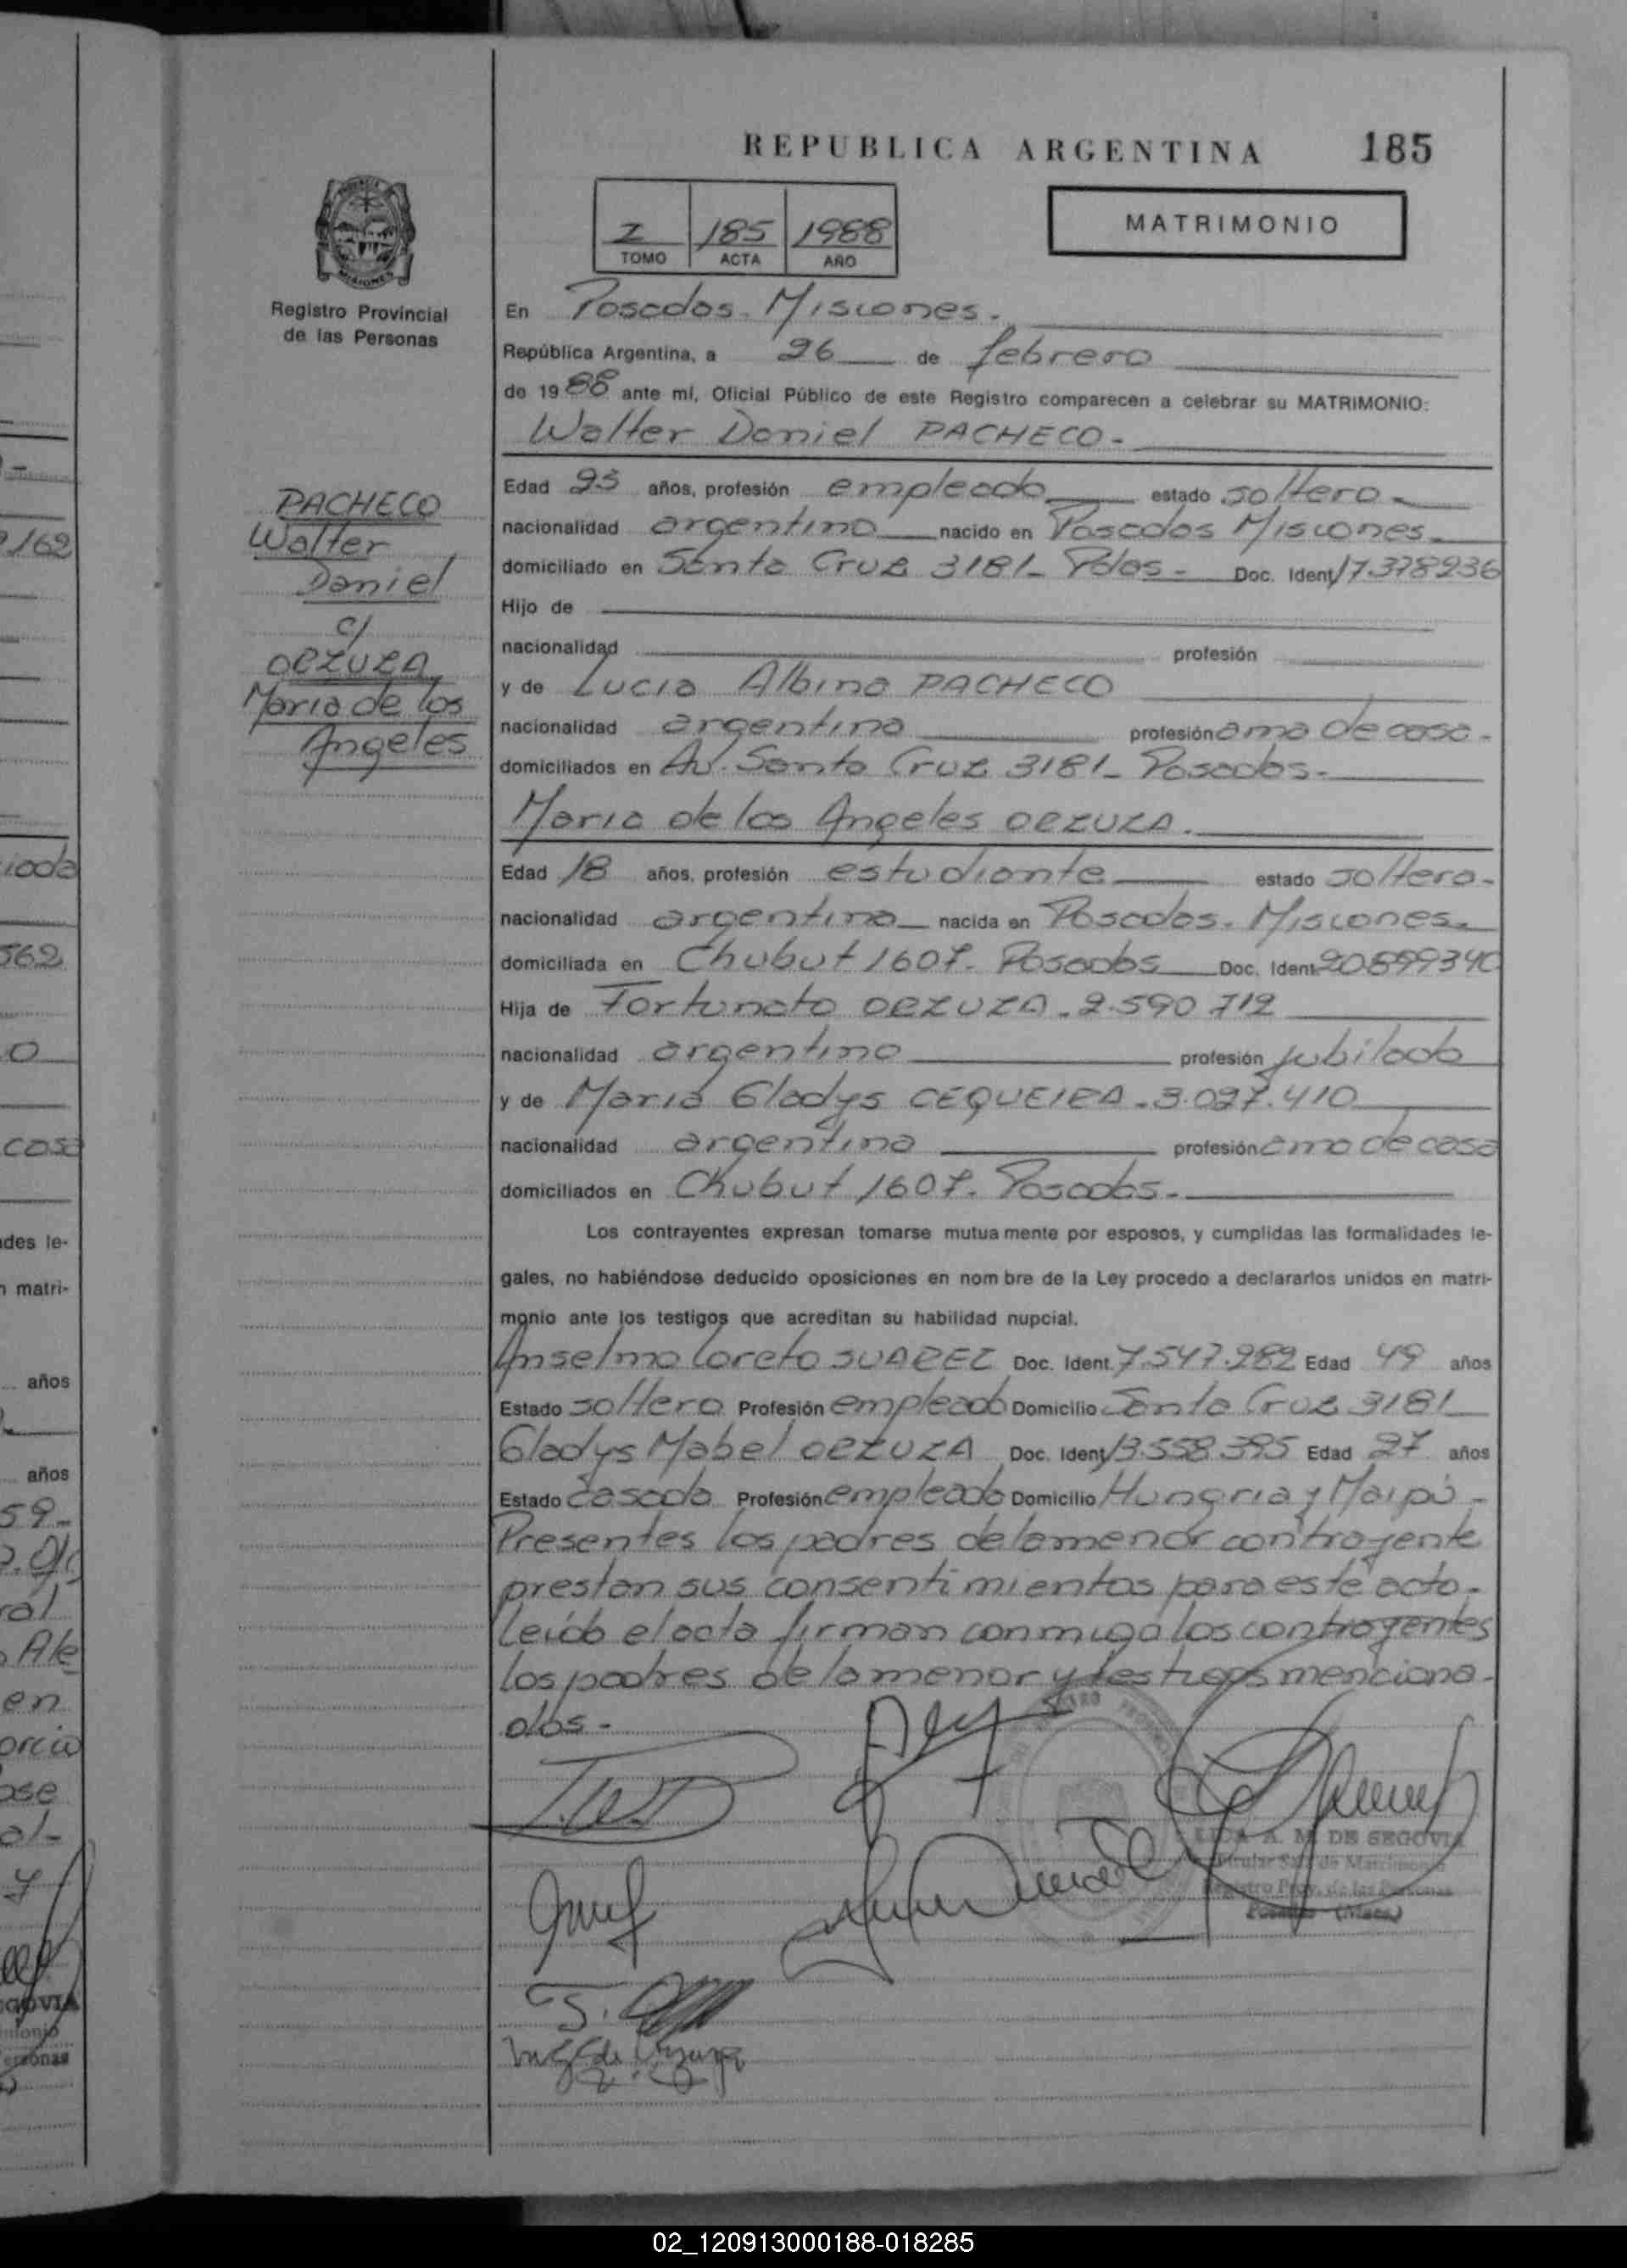 REPUBLICA ARGENTINA 185
I 185 1988
TOMO ACTA AÑO
MATRIMONIO
MISIONES
Registro Provincial
de las Personas
En Posadas - Misiones.
República Argentina, a 26 de febrero
de 1988 ante mí, Oficial Público de este Registro comparecen a celebrar su MATRIMONIO:
Walter Daniel PACHECO.
Edad 23 años, profesión empleado estado soltero
nacionalidad argentino nacido en Posadas Misiones
domiciliado en Santa Cruz 3181 - Pdas - Doc. Ident. 17.378236
Hijo de
nacionalidad profesión
y de Lucia Albina PACHECO
nacionalidad argentina profesión ama de casa.
domiciliados en Av. Santa Cruz 3181 - Posadas.
Maria de los Angeles ORZUZA.
Edad 18 años, profesión estudiante estado soltera.
nacionalidad argentina nacida en Posadas. Misiones.
domiciliada en Chubut 1607. Posadas Doc. Ident. 20899340
Hija de Fortunato ORZUZA. 2.590 712
nacionalidad argentino profesión jubilado
y de Maria Gladys CEQUEIRA. 3.027.410
nacionalidad argentina profesión ama de casa
domiciliados en Chubut 1607. Posadas.
Los contrayentes expresan tomarse mutua mente por esposos, y cumplidas las formalidades le-
gales, no habiéndose deducido oposiciones en nom bre de la Ley procedo a declararlos unidos en matri-
monio ante los testigos que acreditan su habilidad nupcial.
Anselmo Loreto SUAREZ Doc. Ident. 7.547.282 Edad 49 años
Estado soltero Profesión empleado Domicilio Santa Cruz 3181
Gladys Mabel ORZUZA Doc. Ident. 13.558.395 Edad 27 años
Estado casada Profesión empleada Domicilio Hungria y Maipú.
Presentes los padres de la menor contrayente
prestan sus consentimientos para este acto.
Leido el acta firman conmigo los contrayentes
los padres de la menor y testigos menciona-
dos.
A. M. DE SEGOVIA
Titular Sala de Matrimonio
Registro Prov. de las Personas
Posadas (Mnes.)
PACHECO
Walter
Daniel
c/
ORZUZA
Maria de los
Angeles
2/162
562
0
casa
des le-
n matri-
años
años
59-
ral
Ale
en
al-
y
02_120913000188-018285